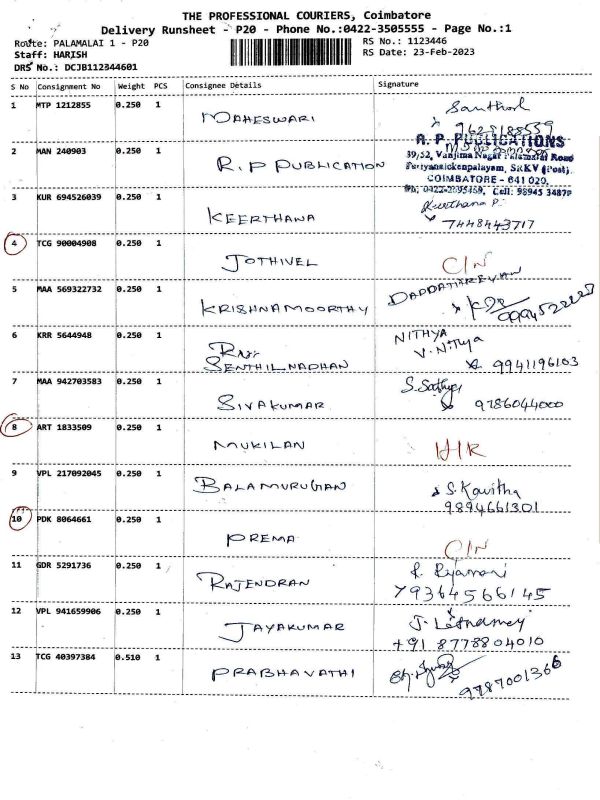 THE PROFESSIONAL COURIERS, Coimbatore
Delivery Runsheet - P20 - Phone No.:0422-3505555 - Page No.:1
Route: PALAMALAI 1 - P20 RS No.: 1123446
Staff: HARISH RS Date: 23-Feb-2023
DRS No.: DCJB112344601
S No Consignment No Weight PCS Consignee Details Signature
1 MTP 1212855 0.250 1 MAHESWARI Santhosh
9629188559
2 MAN 240903 0.250 1 R.P PUBLICATION R. P. PUBLICATIONS
39/52, Vanjima Nagar Palamalai Road
Periyanaickenpalayam, SRKV (Post),
COIMBATORE - 641 020.
Ph: 0422-2695459, Cell: 98945 34879
3 KUR 694526039 0.250 1 KEERTHANA Keerthana P.
7448443717
4 TCG 90004908 0.250 1 JOTHIVEL C/N
5 MAA 569322732 0.250 1 KRISHNAMOORTHY
6 KRR 5644948 0.250 1 SENTHILNADHAN NITHYA
V. Nithya
9941196103
7 MAA 942703583 0.250 1 SIVAKUMAR S. Sathya
9786044000
8 ART 1833509 0.250 1 MUKILAN H/R
9 VPL 217092045 0.250 1 BALAMURUGAN S. Kavitha
9894661301
10 PDK 8064661 0.250 1 PREMA C/N
11 GDR 5291736 0.250 1 RAJENDRAN
9364566145
12 VPL 941659906 0.250 1 JAYAKUMAR
+91 8778804010
13 TCG 40397384 0.510 1 PRABHAVATHI
9787001366